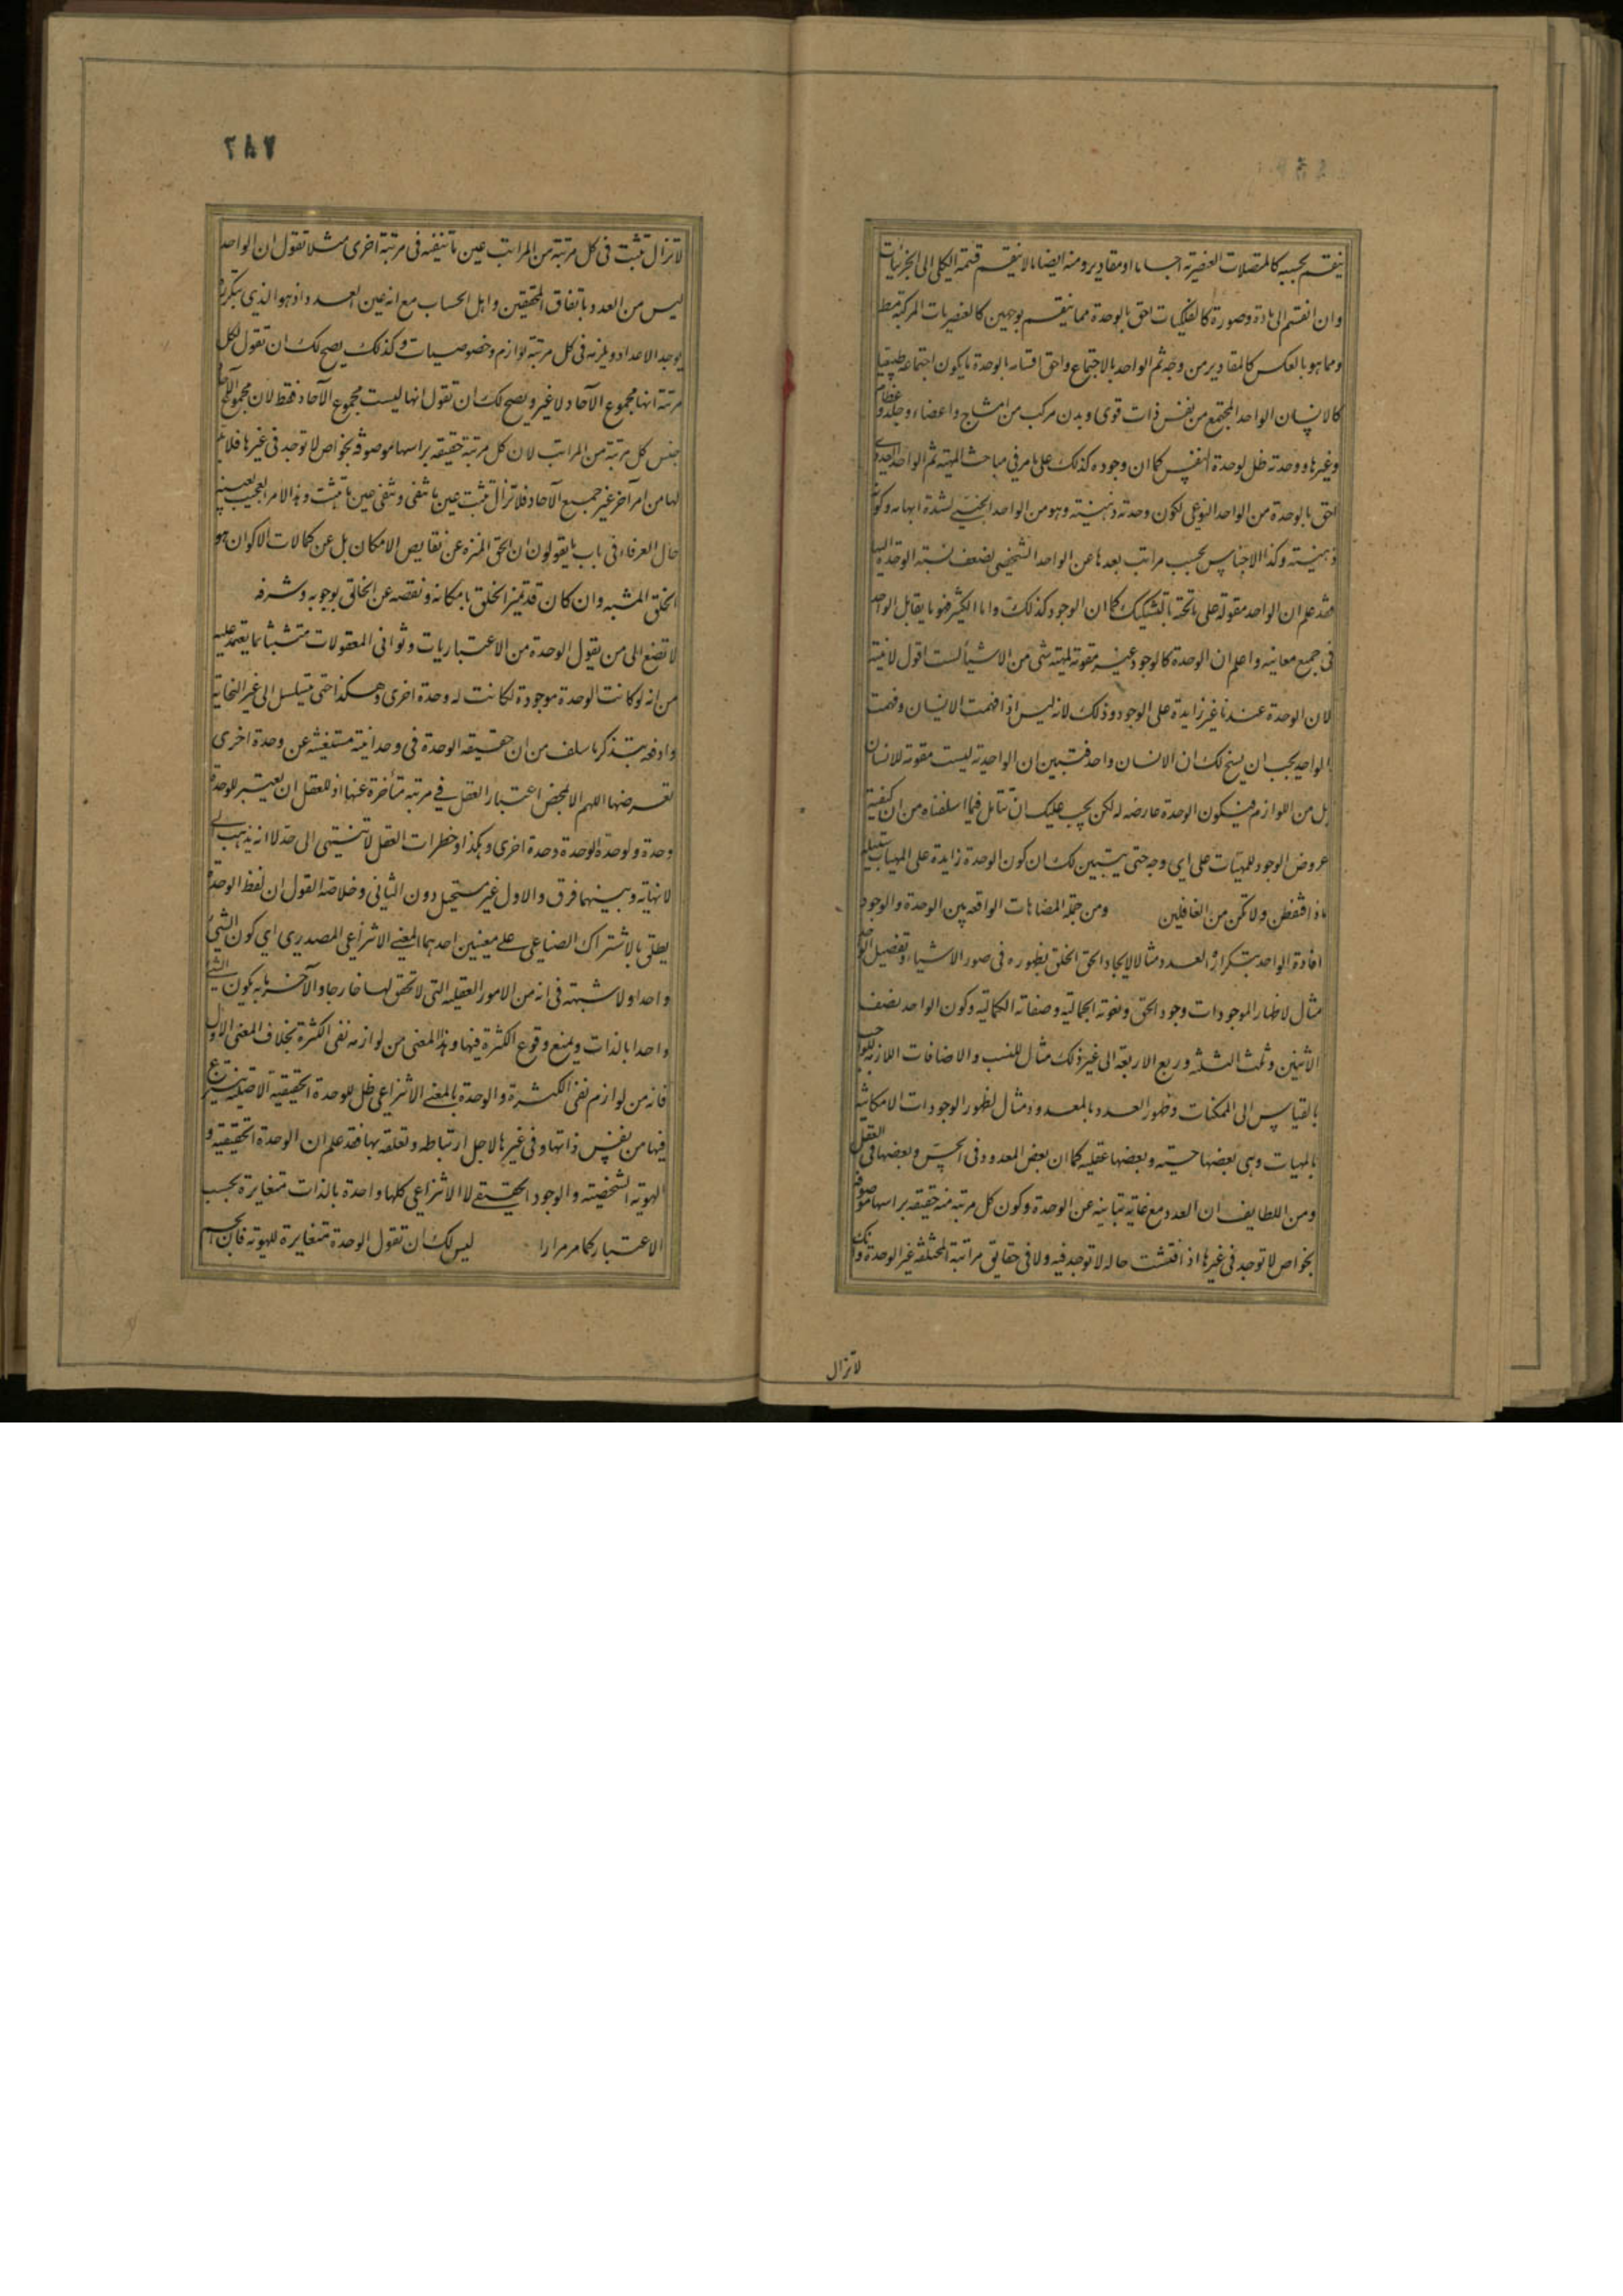 ينقسم بحسبه كالمتصلات العنصرية اجساما او مقادير ومنه ايضا ما لا ينقسم قسمة الكلى الى الجزئيات
وان انقسم الى مادة وصورة كالفلكيات احق بالوحدة مما ينقسم بوجهين كالعنصريات المركبة
ومما هو بالعكس كالمقادير من وجه ثم الواحد بالاجتماع واحق اقسامه بالوحدة ما يكون اجتماعه طبيعيا
كالانسان الواحد المجتمع من نفس ذات قوى وبدن مركب من امشاج واعضاء وجلد وعظام
وغيرها ووحدته ظل لوحدة النفس كما ان وجوده كذلك على ما مر فى مباحث المهية ثم الواحد العددى
احق بالوحدة من الواحد النوعى لكون وحدته ذهنية وهو من الواحد الجنسى لشدة ابهامه وكونه
ذهنية وكذا الاجناس بحسب مراتب بعدها عن الواحد الشخصى لضعف نسبة الوحدة اليها
فقد علم ان الواحد مقولة على ما تحته بالتشكيك كما ان الوجود كذلك واما الكثير فهو ما يقابل الواحد
فى جميع معانيه واعلم ان الوحدة كالوجود غير مقومة لمهية شئ من الاشياء لست اقول لانيته
لان الوحدة عندنا غير زايدة على الوجود وذلك لانه ليس اذا فهمت الانسان وفهمت
الواحد يجب ان يسنح لك ان الانسان واحد فتبين ان الواحدية ليست مقومة للانسان
بل من اللوازم فيكون الوحدة عارضه له لكن يجب عليك ان تتامل فيما اسلفناه من ان كيفية
عروض الوجود للمهيات على اى وجه حتى يتبين لك ان كون الوحدة زايدة على المهيات
ماذا فتفطن ولا تكن من الغافلين ومن جملة المضاهات الواقعه بين الوحدة والوجود
افادة الواحد بتكراره العدد مثالا لايجاد الحق الخلق بظهوره فى صور الاشياء وتفصيل العدد
مثال لاظهار الموجودات وجود الحق ونعوته الجمالية وصفاته الكمالية وكون الواحد نصف
الاثنين وثلث الثلثه وربع الاربعة الى غير ذلك مثال للنسب والاضافات اللازمة للواجب
بالقياس الى الممكنات وظهور العدد بالمعدود مثال لظهور الوجودات الامكانية
بالمهيات وهى بعضها حسية وبعضها عقليه كما ان بعض المعدود فى الحس وبعضها فى العقل
ومن اللطايف ان العدد مع غاية تباينه عن الوحدة وكون كل مرتبة منه حقيقه براسها موصوفة
بخواص لا توجد فى غيرها اذا فتشت حاله لا توجد فيه ولا فى حقايق مراتبة المختلفه غير الوحدة وانك
لا تزال
٢٨٧
لا تزال تثبت فى كل مرتبة من المراتب عين ما تنفيه فى مرتبة اخرى مثلا تقول ان الواحد
ليس من العدد باتفاق المحققين واهل الحساب مع انه عين العدد اذ هو الذى بتكرره
يوجد الاعداد ويلزمه فى كل مرتبة لوازم وخصوصيات وكذلك يصح لك ان تقول لكل
مرتبة انها مجموع الآحاد لا غير ويصح لك ان تقول انها ليست مجموع الآحاد فقط لان مجموع الآحاد
جنس كل مرتبة من المراتب لان كل مرتبة حقيقه براسها موصوفه بخواص لا توجد فى غيرها فلا بد
لها من امر آخر غير جميع الآحاد فلا تزال تثبت عين ما تنفى وتنفى عين ما تثبت وهذا الامر العجيب بعينه
حال العرفاء فى باب ما يقولون ان الحق المنزه عن نقايص الامكان بل عن كمالات الاكوان هو
الخلق المشبه وان كان قد تميز الخلق بامكانه ونقصه عن الخالق بوجوبه وشرفه
لا تصغ الى من يقول الوحدة من الاعتباريات وثوانى المعقولات متشبثا بما يعتمد عليه
من انه لو كانت الوحدة موجودة لكانت له وحدة اخرى وهكذا حتى يتسلسل الى غير النهاية
وادفعه بتذكر ما سلف من ان حقيقه الوحدة فى وحدانية مستغنيه عن وحدة اخرى
تعرضها اللهم الا بمحض اعتبار العقل فى مرتبة متأخرة عنها اذ للعقل ان يعتبر للوحدة
وحدة ولوحدة الوحدة وحدة اخرى وهكذا وخطرات العقل لا تنتهى الى حد لا انه يذهب الى
لا نهاية وبينهما فرق والاول غير مستحيل دون الثانى وخلاصة القول ان لفظ الوحدة
يطلق بالاشتراك الصناعى على معنيين احدهما المعنى الانتزاعى المصدرى اى كون الشئ
واحدا ولا شبهة فى انه من الامور العقليه التى لا تحقق لها خارجا والآخر ما به يكون الشئ
واحدا بالذات ويمنع وقوع الكثرة فيها وهذا المعنى من لوازمه نفى الكثرة بخلاف المعنى الاول
فانه من لوازم نفى الكثرة والوحدة بالمعنى الانتزاعى ظل للوحدة الحقيقية الاصليه ينتزع
فيها من نفس ذاتها وفى غيرها لاجل ارتباطه وتعلقه بها فقد علم ان الوحدة الحقيقيه و
الهوية الشخصية والوجود الحقيقى لا الانتزاعى كلها واحدة بالذات متغايرة بحسب
الاعتبار كما مر مرارا ليس لك ان تقول الوحدة متغايرة للهوية فان الجسم